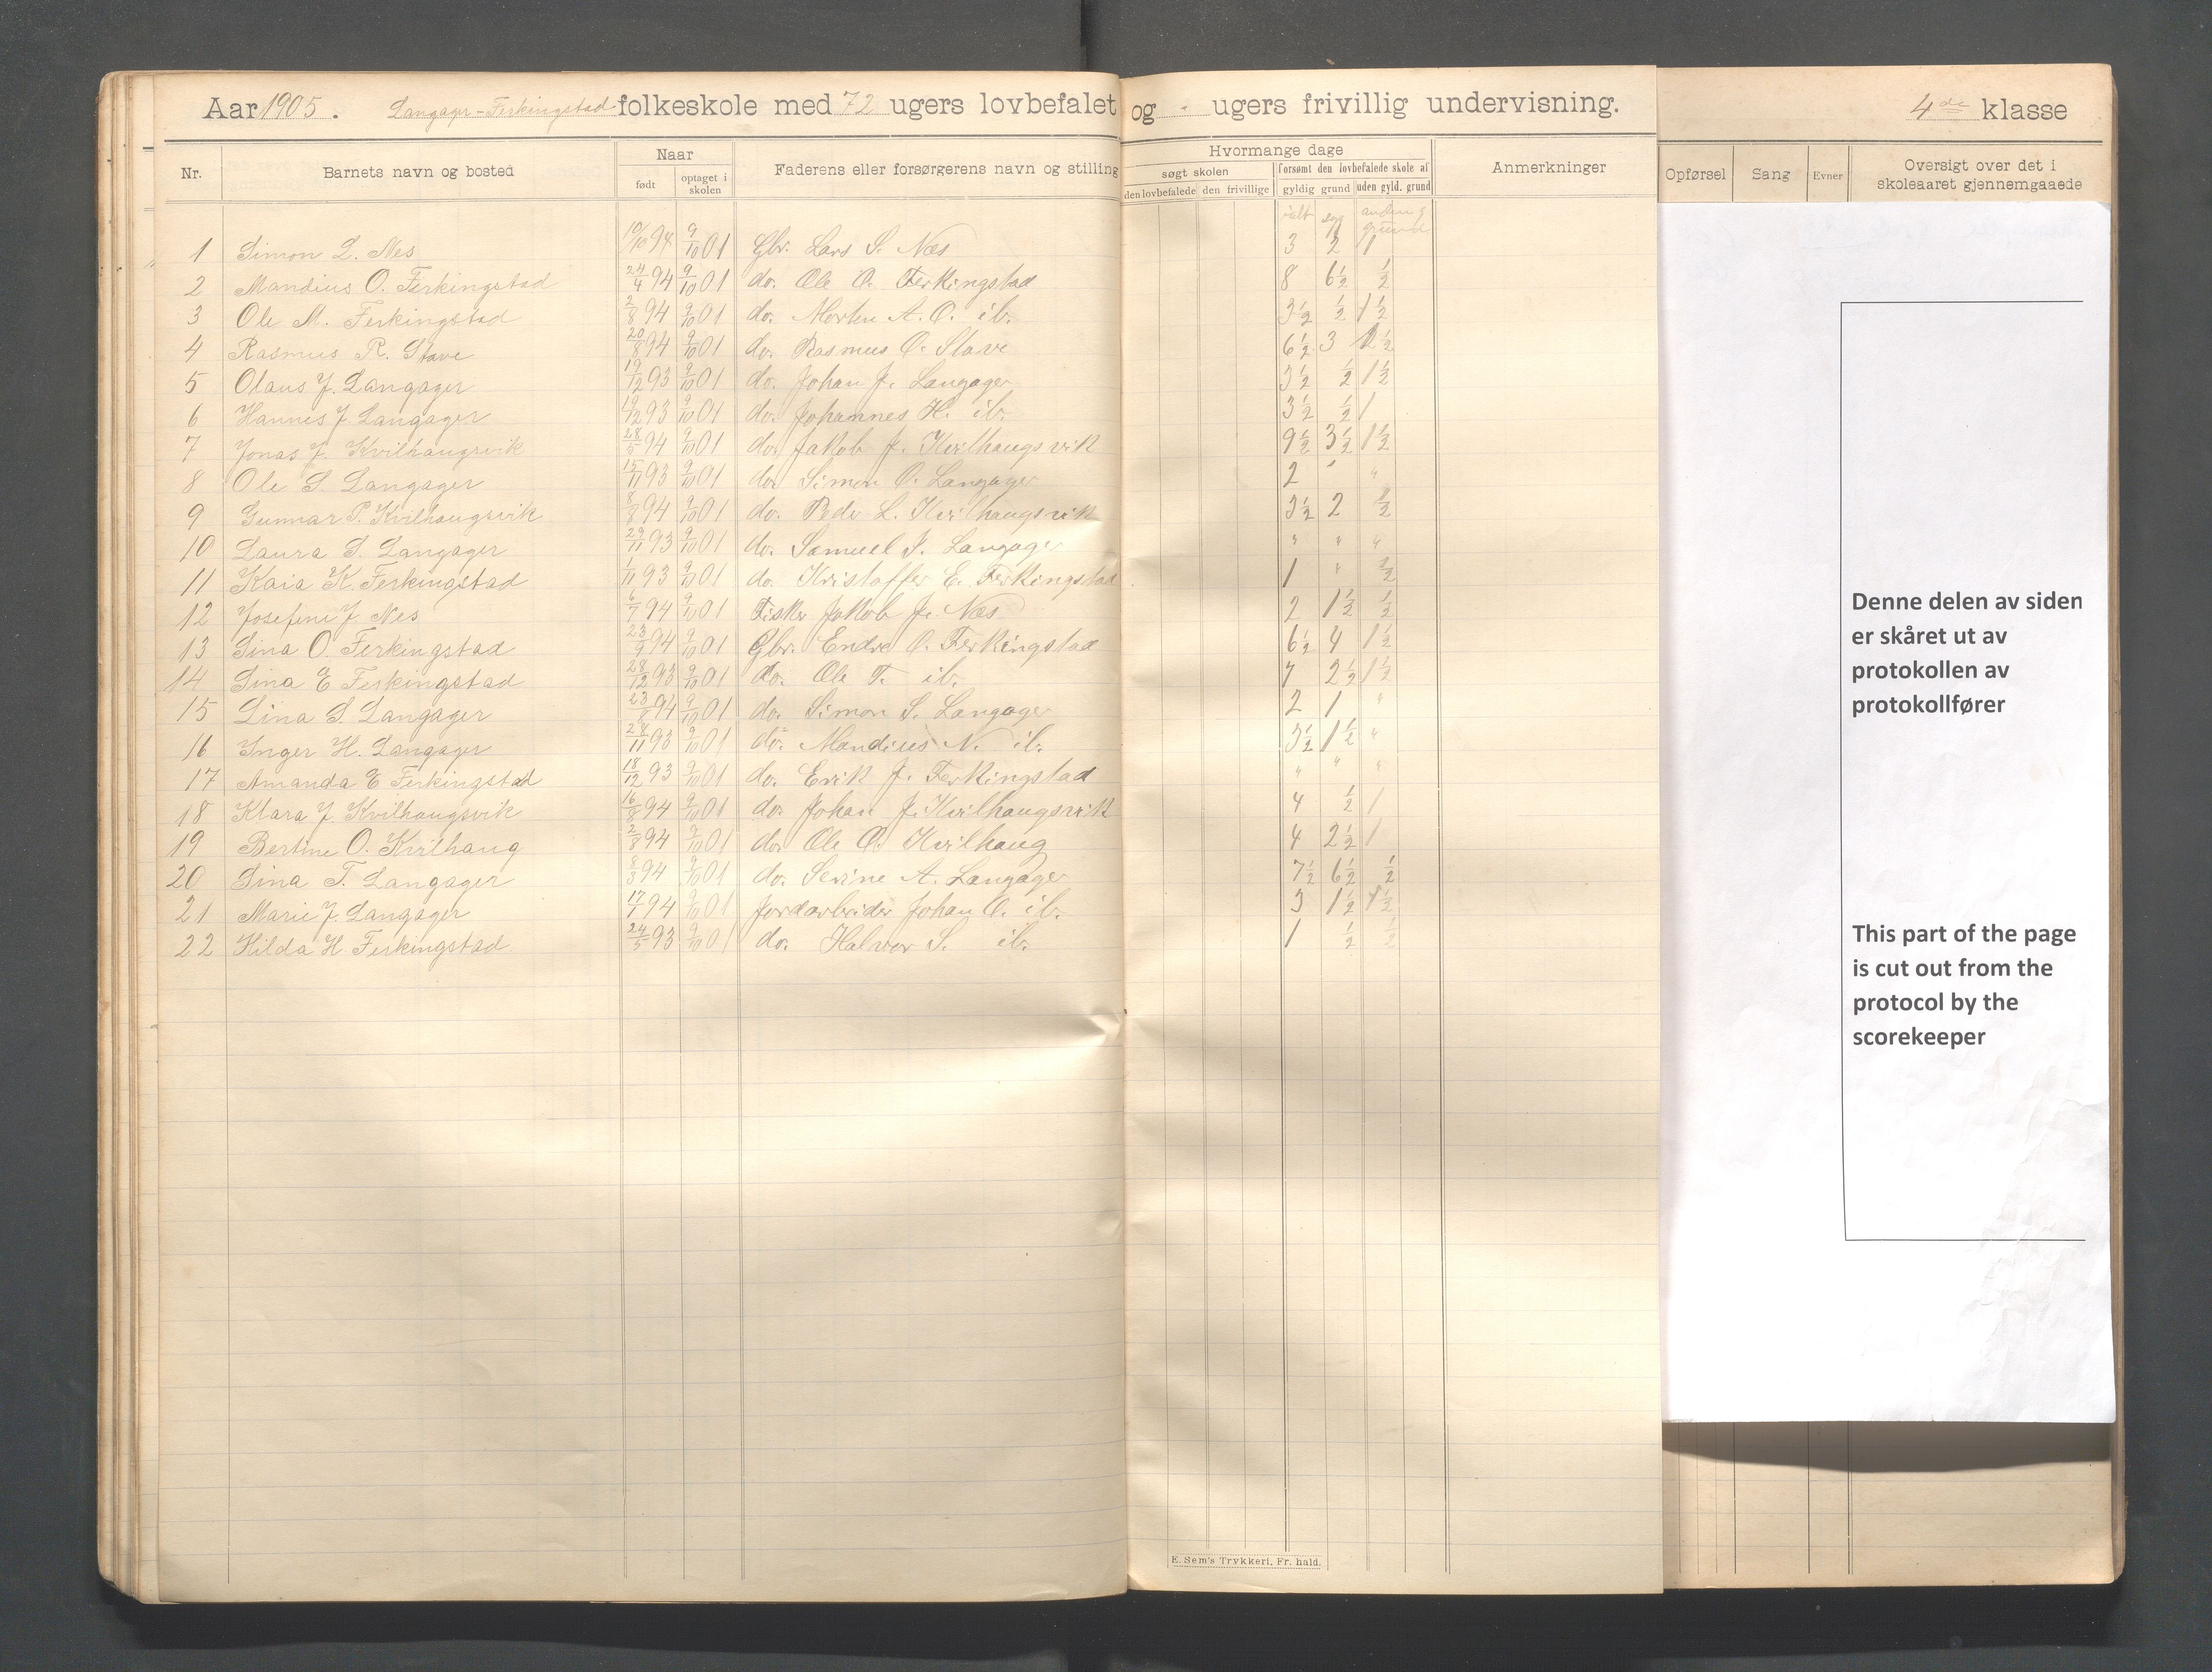 Aar 1905. Langager-Ferkingstad folkeskole med 72 ugers lovbefalet og - ugers frivillig undervisning. 4de klasse
Nr. Barnets navn og bosted Naar født optaget i skolen Faderens eller forsørgerens navn og stilling Hvormange dage søgt skolen den lovbefalede den frivillige forsømt den lovbefalede skole af gyldig grund uden gyld. grund Anmerkninger Opførsel Sang Evner Oversigt over det i skoleaaret gjennemgaaede
ialt syg anden g grund
1 Simon L. Nes 10/10 94 9/10 01 Gbr. Lars S. Næs 3 2 1
2 Mandius O. Ferkingstad 24/4 94 9/10 01 do. Ole O. Ferkingstad 8 6½ ½
3 Ole M. Ferkingstad 2/8 94 9/10 01 do. Morten A. O. ib. 3½ ½ 1½
4 Rasmus R. Stave 20/8 94 9/10 01 do. Rasmus O. Stave 6½ 3
5 Olaus J. Langager 19/12 93 9/10 01 do. Johan J. Langager 3½ ½ 1½
6 Hannes J. Langager 19/12 93 9/10 01 do. Johannes H. ib. 3½ ½ 1
7 Jonas J. Kvilhaugsvik 28/5 94 9/10 01 do. Jakob J. Kvilhaugsvik 9½ 3½ 1½
8 Ole S. Langager 15/11 93 9/10 01 do. Simon O. Langager 2 " "
9 Gunnar P. Kvilhaugsvik 8/8 94 9/10 01 do. Peder L. Kvilhaugsvik 3½ 2 ½
10 Laura S. Langager 29/11 93 9/10 01 do. Samuel J. Langager " " "
11 Kaia K. Ferkingstad 1/11 93 9/10 01 do. Kristoffer E. Ferkingstad 1 " ½
12 Josefine J. Nes 6/7 94 9/10 01 Fisker Jakob J. Næs 2 1½ ½
13 Sina O. Ferkingstad 23/9 94 9/10 01 Gbr. Endre O. Ferkingstad 6½ 4 1½
14 Sina E Ferkingstad 28/12 93 9/10 01 do. Ole T. ib. 7 2½ 1½
15 Lina S. Langager 23/8 94 9/10 01 do. Simon S. Langager 2 1 "
16 Inger H. Langager 28/11 93 9/10 01 do. Mandius N. ib. 3½ 1½ "
17 Amanda E Ferkingstad 18/12 93 9/10 01 do. Erik J. Ferkingstad " " "
18 Klara J. Kvilhaugsvik 16/8 94 9/10 01 do. Johan J. Kvilhaugsvik 4 ½ 1
19 Bertine O. Kvilhaug 2/8 94 9/10 01 do. Ole O. Kvilhaug 4 2½ 1
20 Sina T. Langager 8/8 94 9/10 01 do. Serine A. Langager 7½ 6½ ½
21 Marie J. Langager 17/1 94 9/10 01 Jordarbeider Johan O. ib. 3 1½ 1½
22 Hilda H. Ferkingstad 24/5 93 9/10 01 do. Halvor S. ib. 1 ½ ½
E. Sem's Trykkeri, Fr. hald.
Denne delen av siden
er skåret ut av
protokollen av
protokollfører
This part of the page
is cut out from the
protocol by the
scorekeeper